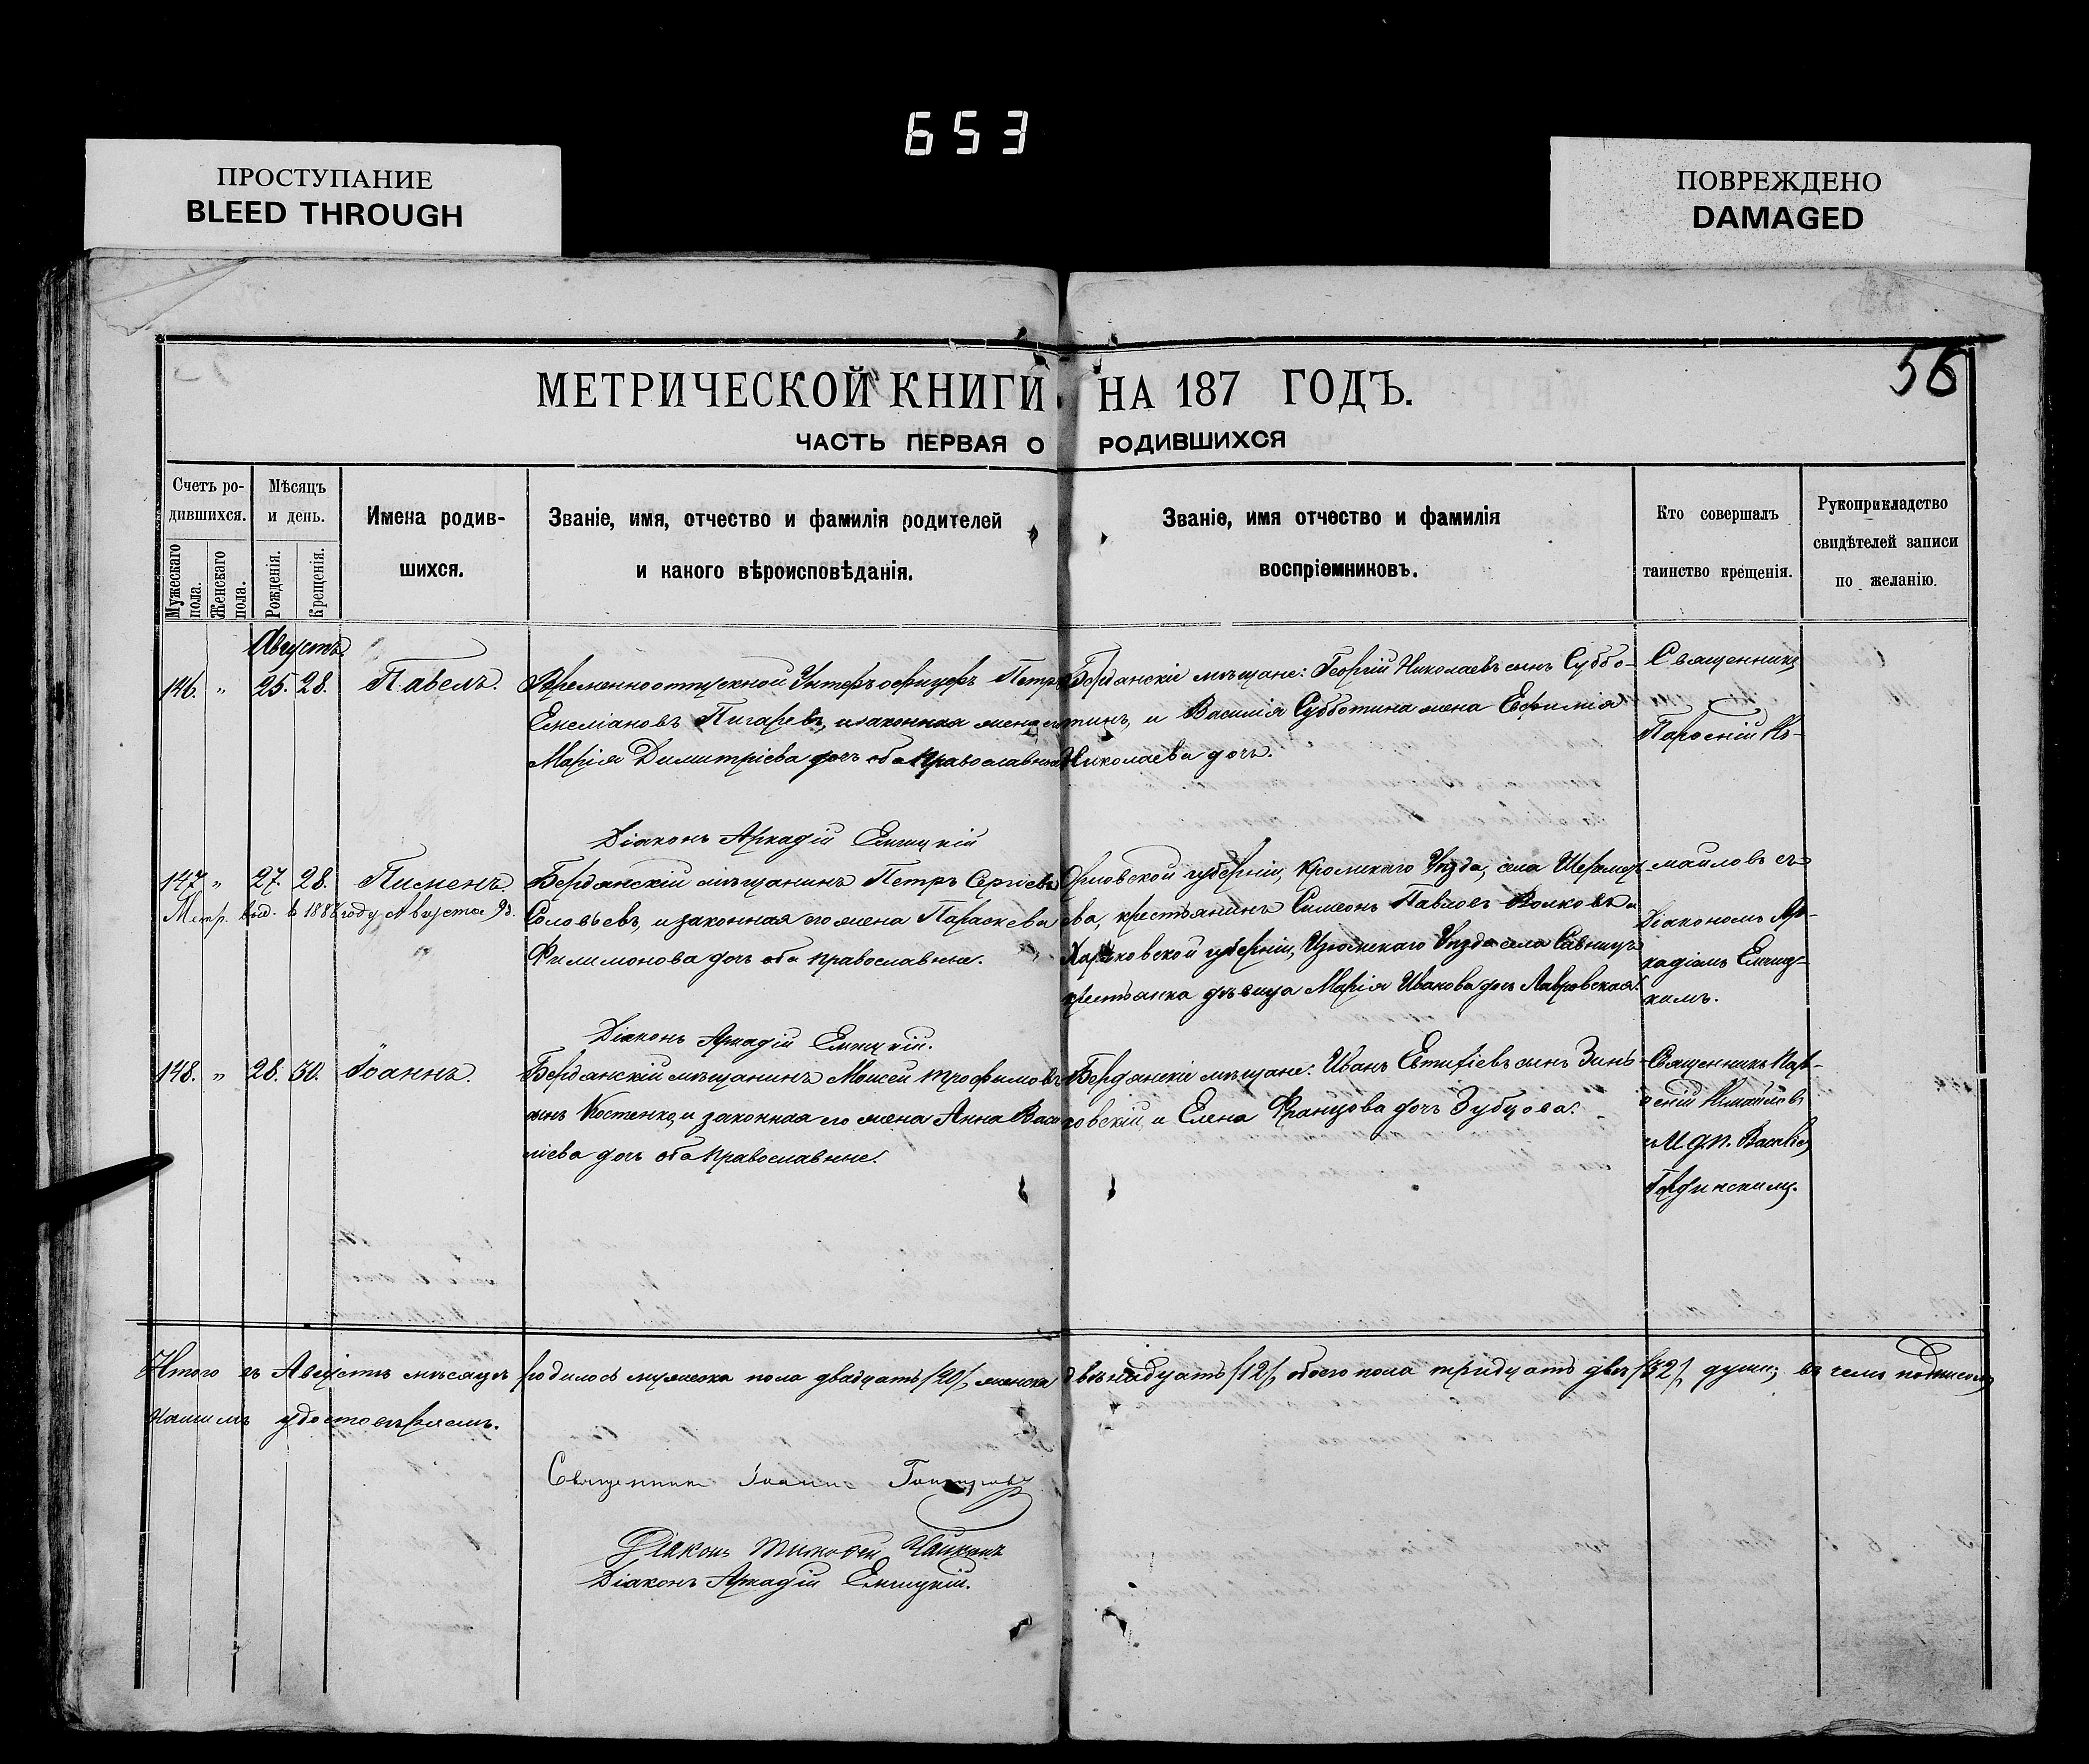 653
ПРОСТУПАНИЕ
BLEED THROUGH
ПОВРЕЖДЕНО
DAMAGED
56
МЕТРИЧЕСКОЙ КНИГИ НА 187 ГОДЪ.
ЧАСТЬ ПЕРВАЯ О РОДИВШИХСЯ
Счетъ ро-
дившихся.
Мужескаго
пола.
Женскаго
пола.
Мѣсяцъ
и день.
Рожденія.
Крещенія.
Имена родив-
шихся.
Званіе, имя, отчество и фамилія родителей
и какого вѣроисповѣданія.
Званіе, имя отчество и фамилія
воспріемниковъ.
Кто совершалъ
таинство крещенія.
Рукоприкладство
свидѣтелей записи
по желанію.
Августъ
146. " 25. 28. Павелъ.
Временноотпускной Унтеръ офицеръ Петръ
Емеліановъ Пигаревъ, и законная жена его
Марія Димитріева дочь оба православные
Бердянскіе мѣщане: Георгій Николаевъ сынъ Суббо-
тинъ, и Василія Субботина жена Евфимія
Николаева дочь.
Священникъ
Парѳеній Из-
Діаконъ Аркадій
147. " 27. 28. Пименъ.
Метр. выд. в 188 году Августа 9 д.
Бердянскій мѣщанинъ Петръ Сергіевъ
Соловьевъ, и законная его жена Параскева
Филимонова дочь оба православные.
Орловской губерніи, Кромскаго Уѣзда, села
ва, крестьянинъ Симеонъ Павловъ Волковъ и
Харьковской губерніи, Изюмскаго Уѣзда села Савинцъ
крестьянка дѣвица Марія Иванова дочь Лавровская.
маиловъ съ
Діакономъ Ар-
кадіемъ
кимъ.
Діаконъ Аркадій
148. " 28. 30. Іоаннъ.
Бердянскій мѣщанинъ Моисей Трофимовъ
сынъ Костенко, и законная его жена Анна Васи
ліева дочь оба православные.
Бердянскіе мѣщане: Иванъ Евтихіевъ сынъ Зинь-
ковскій, и Елена Францова дочь Зубцова.
Священникъ Пар-
ѳеній Измаиловъ
Итого въ Августѣ мѣсяцѣ родилось мужеска пола двадцать /20/, женска двѣнадцать /12/, обоего пола тридцать двѣ /32/ души; въ чемъ подписомъ
нашимъ удостовѣряемъ.
Священникъ Іоаннъ
Діаконъ Тимоѳей
Діаконъ Аркадій